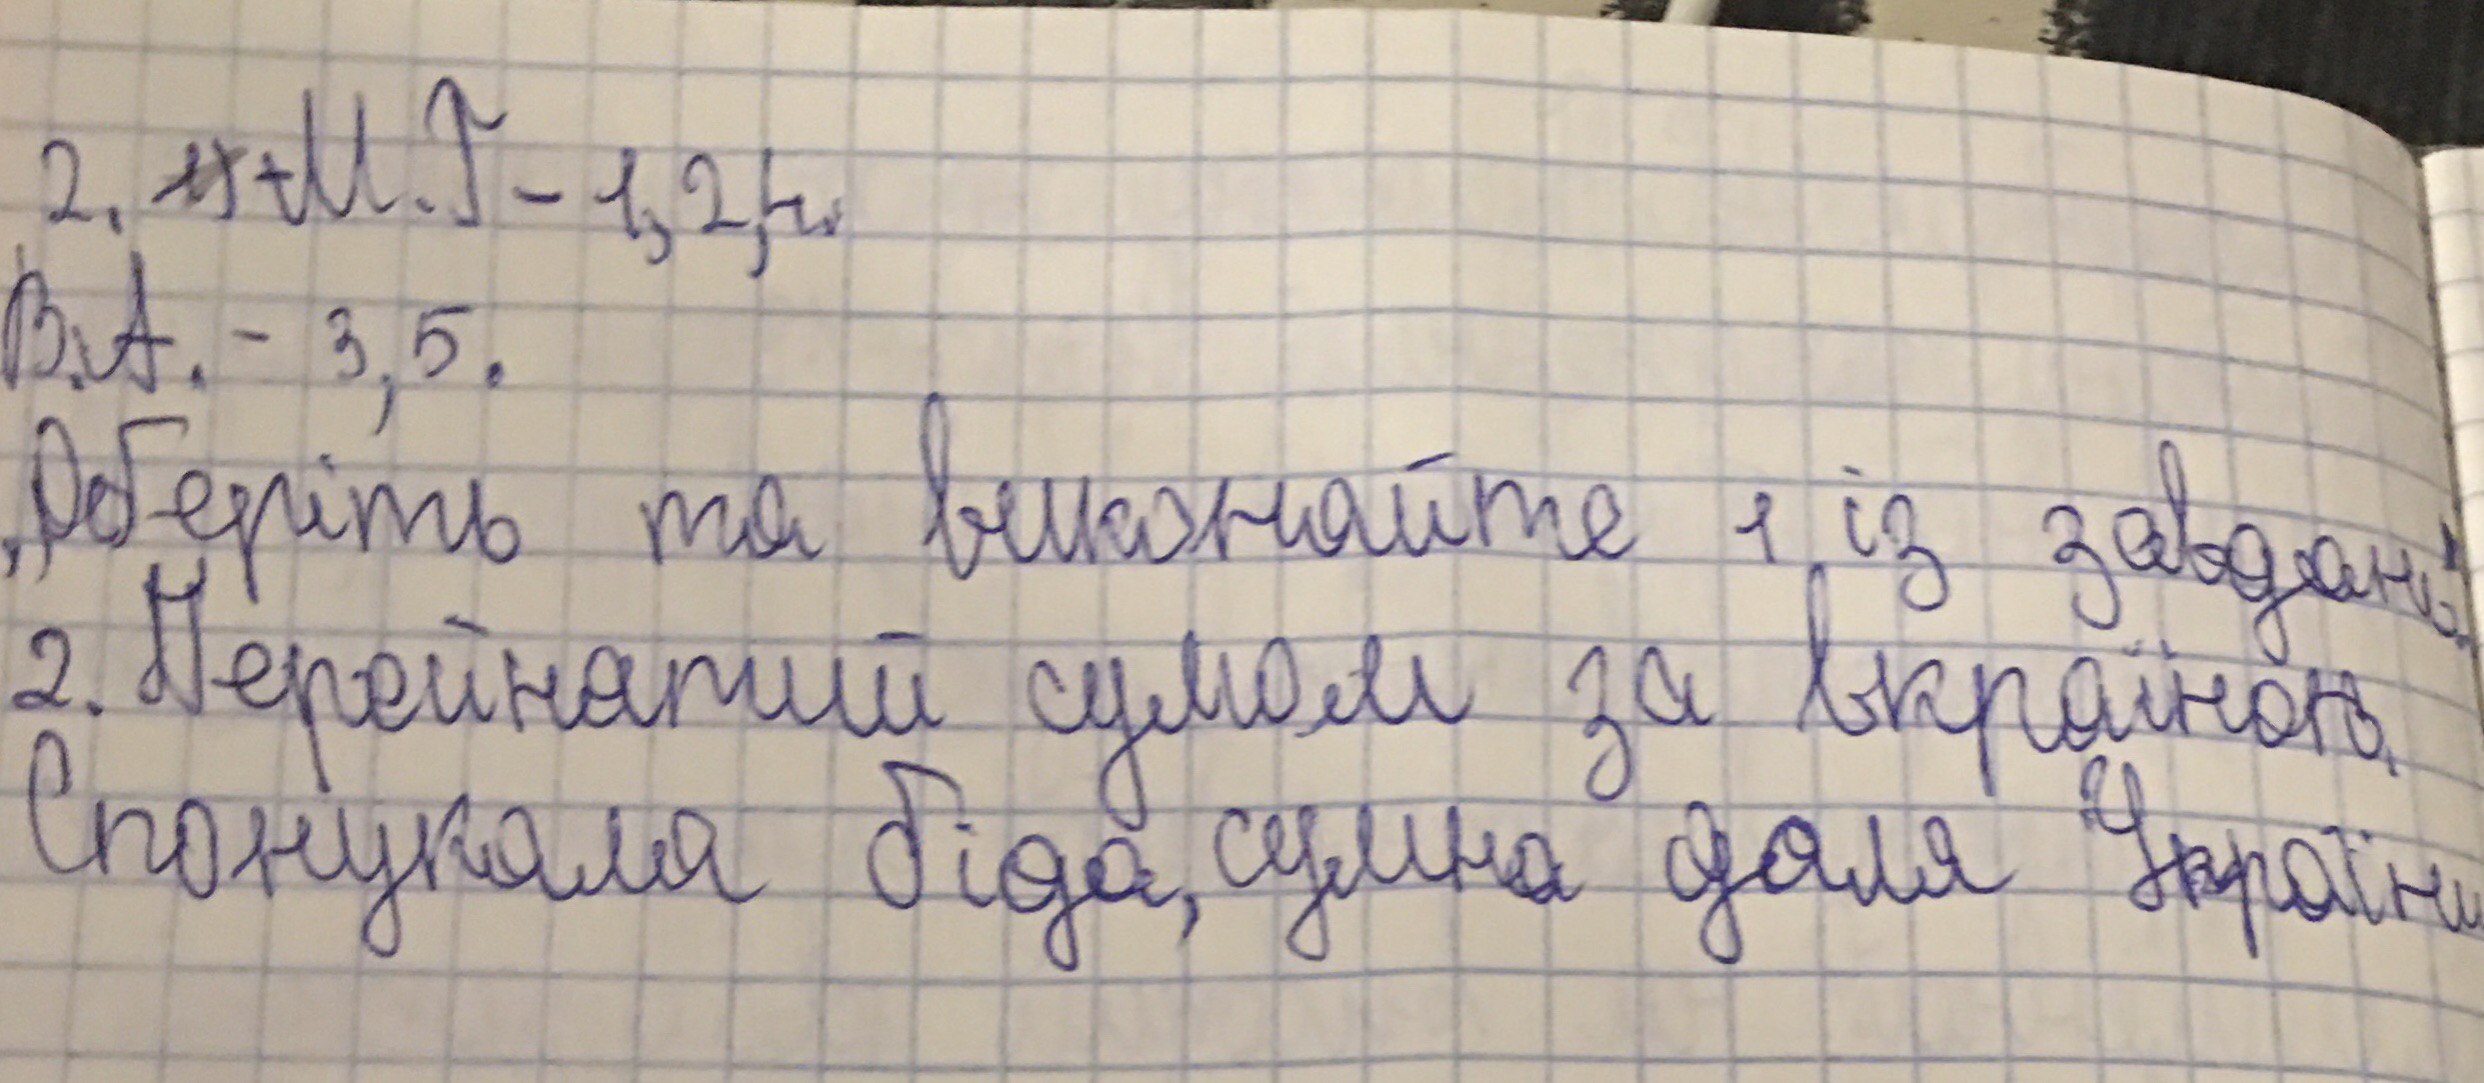 2. М.Г - 1,2,4.
В.А. - 3,5.
„Оберіть та виконайте 1 із завдань"
2. Перейнятий сумом за Вкраїною,
Спонукала біда, сумна доля України